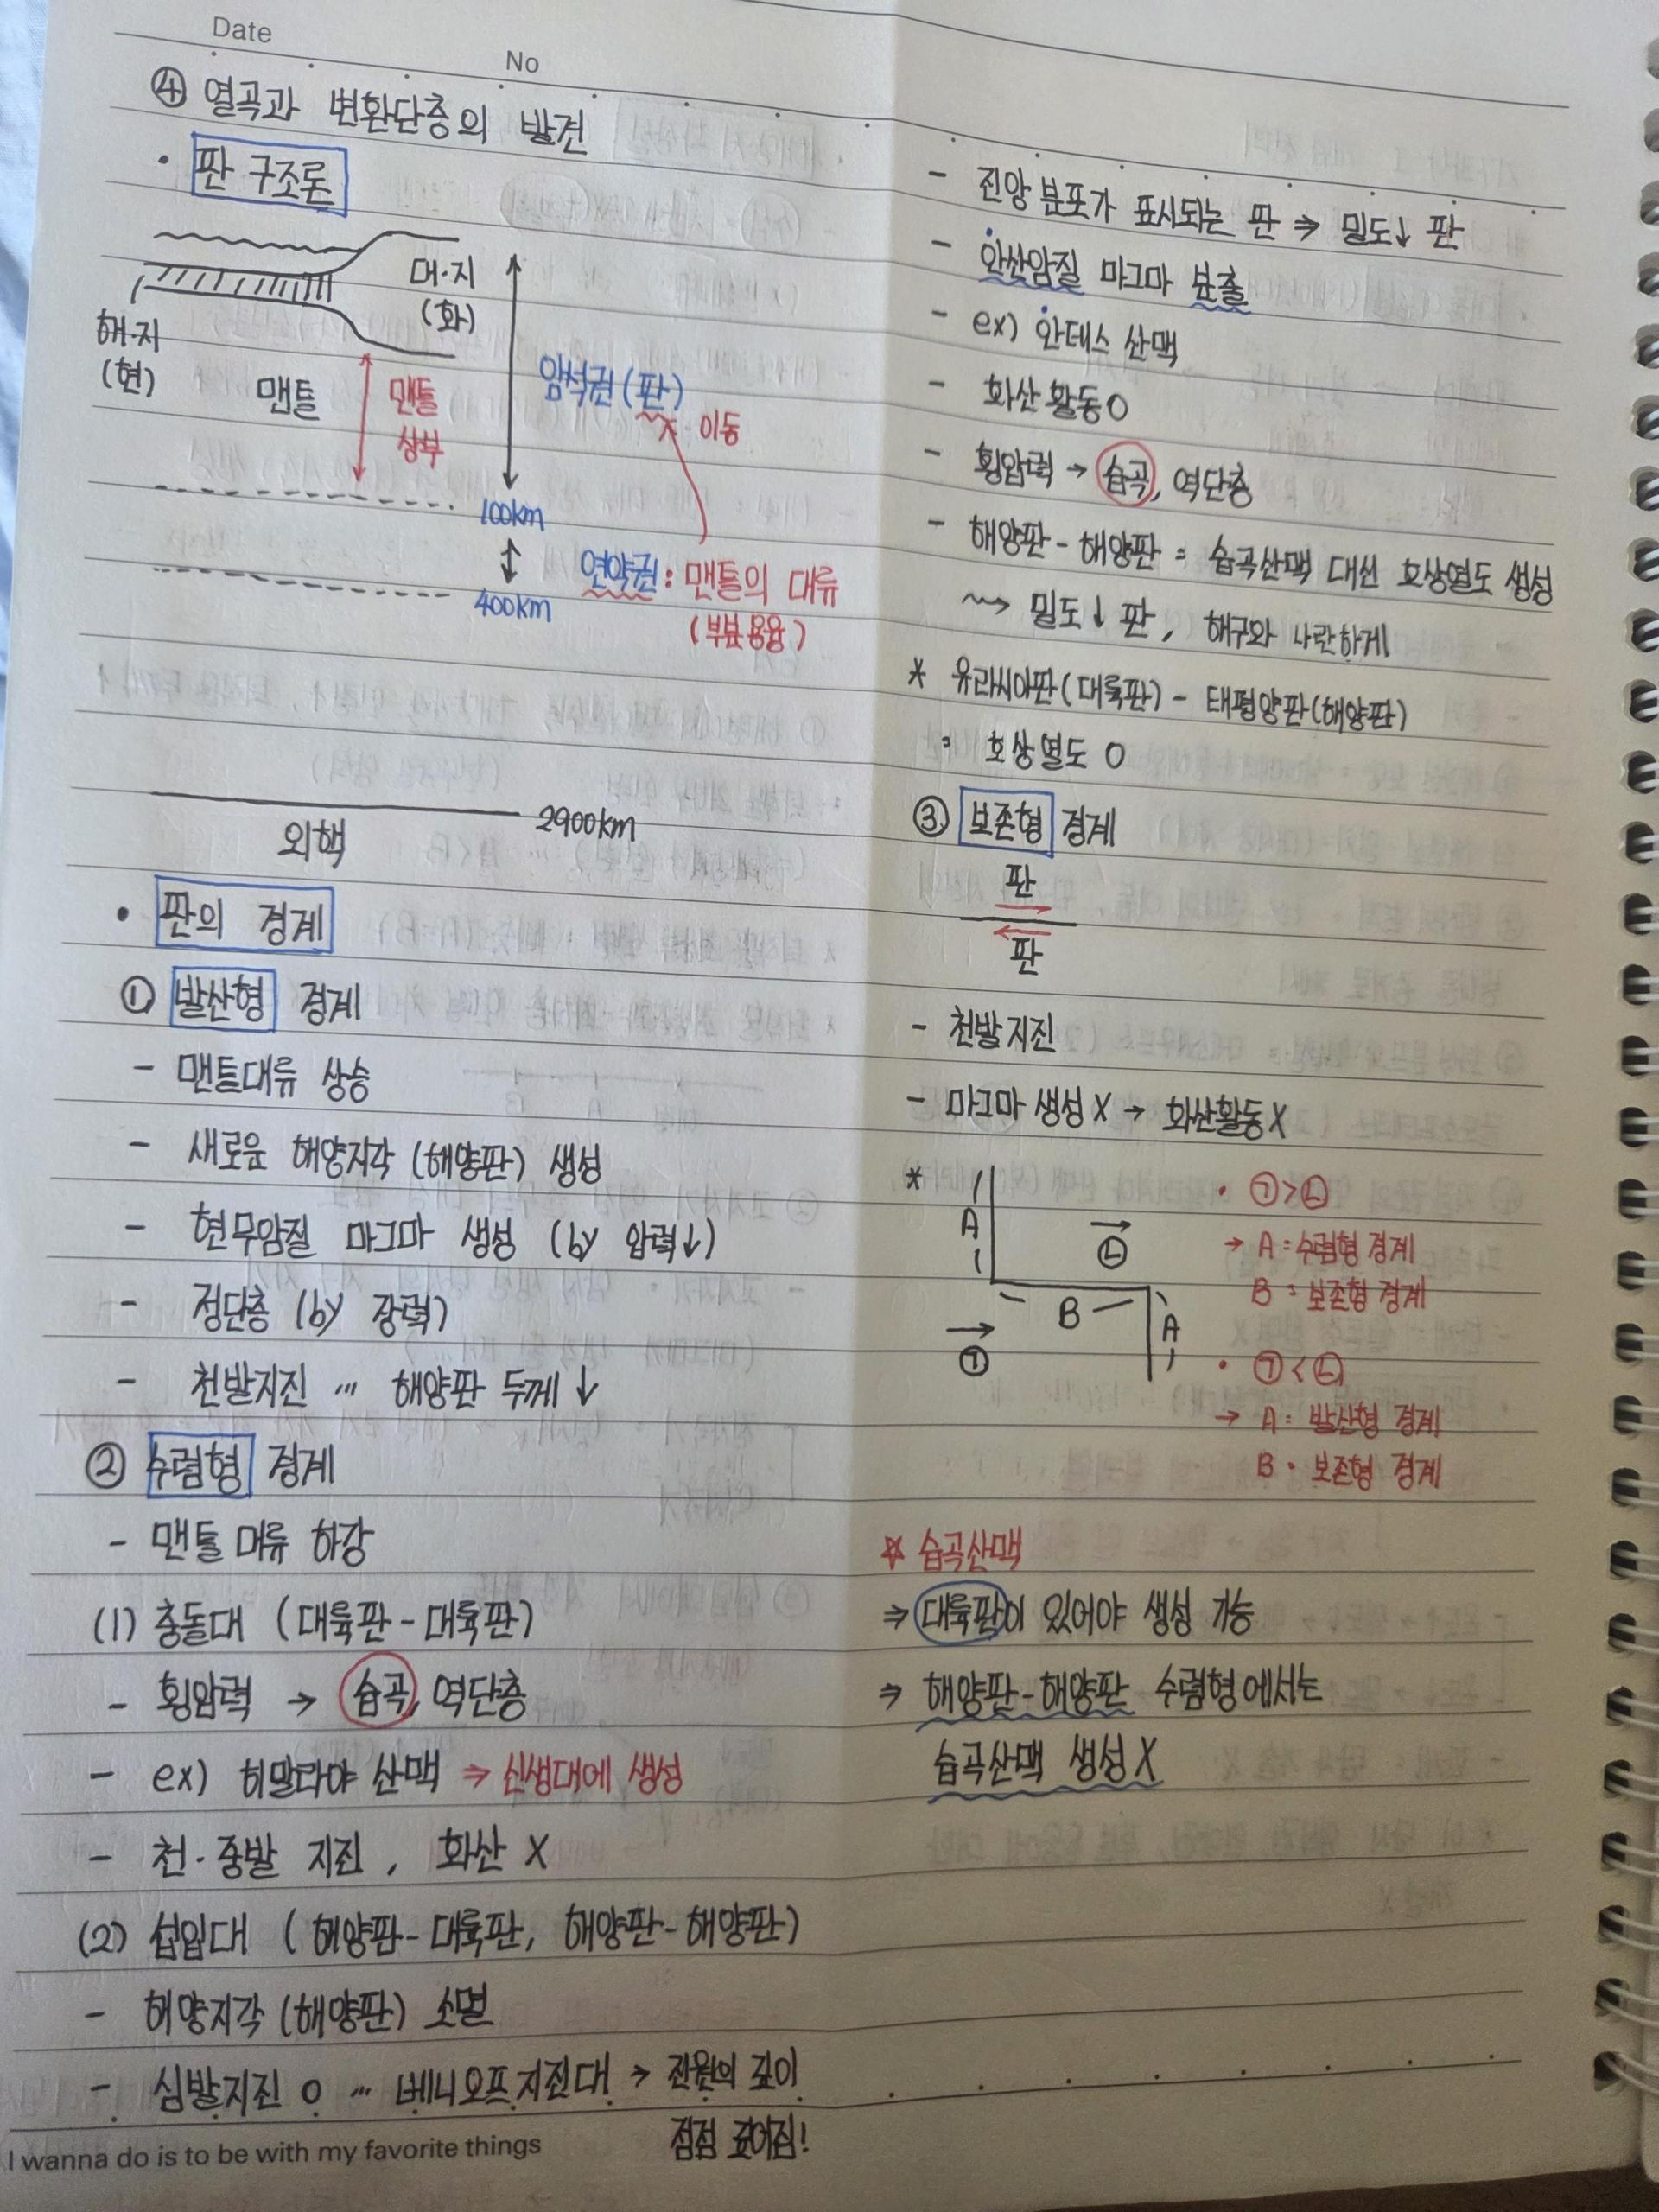 Date
No
④ 열곡과 변환단층의 발견
• 판 구조론
대·지
(화)
해·지
(현)
맨틀
맨틀
상부
암석권 (판)
이동
100km
연약권 : 맨틀의 대류
400km
(부분용융)
2900km
외핵
• 판의 경계
① 발산형 경계
- 맨틀대류 상승
- 새로운 해양지각 (해양판) 생성
- 현무암질 마그마 생성 (by 압력↓)
- 정단층 (by 장력)
- 천발지진 … 해양판 두께 ↓
② 수렴형 경계
- 맨틀 대류 하강
(1) 충돌대 (대륙판-대륙판)
- 횡압력 → 습곡, 역단층
- ex) 히말라야 산맥 ⇒ 신생대에 생성
- 천·중발 지진, 화산 X
(2) 섭입대 (해양판-대륙판, 해양판-해양판)
- 해양지각 (해양판) 소멸
- 심발지진 O … 베니오프지진대 → 진원의 깊이
점점 깊어짐!
I wanna do is to be with my favorite things
- 진앙 분포가 표시되는 판 ⇒ 밀도↓ 판
- 안산암질 마그마 분출
- ex) 안데스 산맥
- 화산 활동 O
- 횡압력 → 습곡, 역단층
- 해양판-해양판 = 습곡산맥 대신 호상열도 생성
⤳ 밀도↓ 판, 해구와 나란하게
* 유라시아판(대륙판) - 태평양판(해양판)
= 호상열도 O
③ 보존형 경계
판
판
- 천발지진
- 마그마 생성 X → 화산활동 X
*
A
→
㉡
B
A
→
㉠
• ㉠>㉡
→ A : 수렴형 경계
B : 보존형 경계
• ㉠<㉡
→ A : 발산형 경계
B : 보존형 경계
☆ 습곡산맥
⇒ 대륙판이 있어야 생성 가능
⇒ 해양판-해양판 수렴형에서는
습곡산맥 생성 X